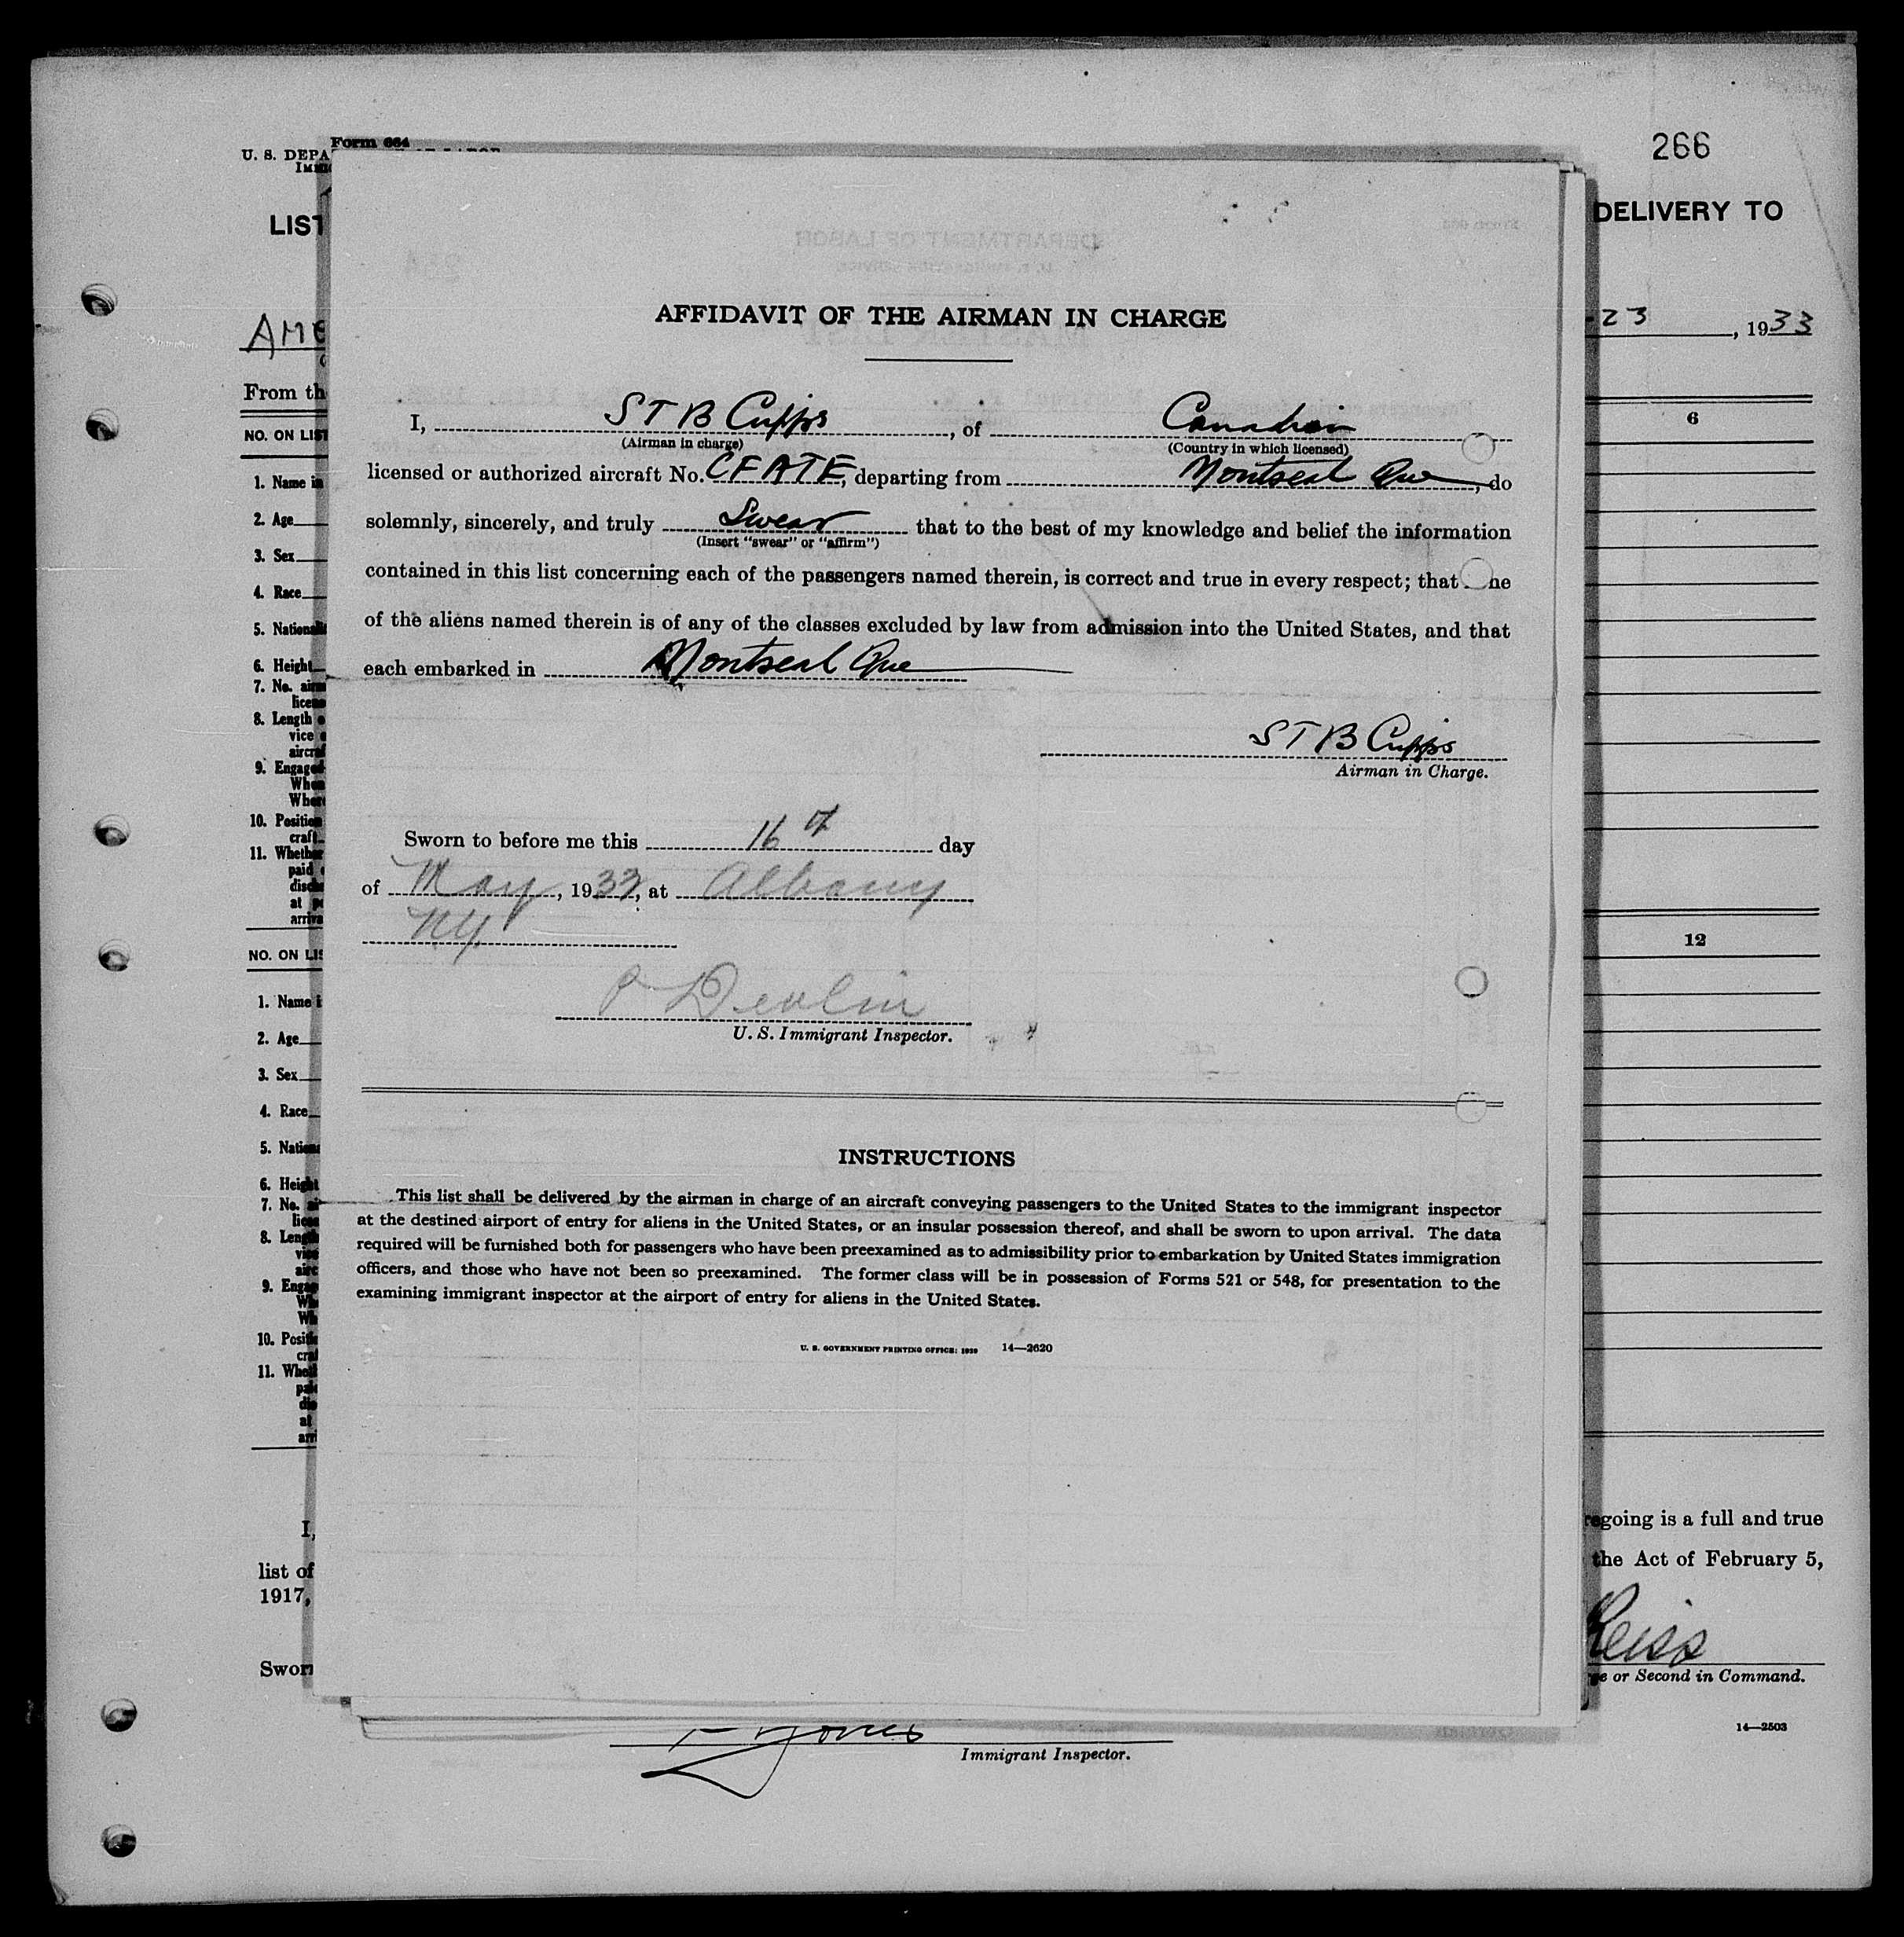 266
Form 664
U. S. DEPA
IMMI
LIST
DELIVERY TO
AME
23, 1933
From th
NO. ON LIST
6
1. Name in
2. Age
3. Sex
4. Race
5. National
6. Height
7. No. airm
license
8. Length o
vice o
aircraf
9. Engaged
When
Where
10. Position
craft
11. Whether
paid o
disch
at po
arriva
NO. ON LIS
12
1. Name i
2. Age
3. Sex
4. Race
5. Nation
6. Height
7. No. ai
licen
8. Length
vice
airc
9. Engag
Wh
Wh
10. Positi
craf
11. Wheth
paid
dis
at
arri
I,
going is a full and true
list of
the Act of February 5,
1917,
Reiss
Sworn
ge or Second in Command.
14—2503
Jones
Immigrant Inspector.
AFFIDAVIT OF THE AIRMAN IN CHARGE
I, S T B Cupps, of Canadian
(Airman in charge) (Country in which licensed)
licensed or authorized aircraft No. CFATE, departing from Montreal Que, do
solemnly, sincerely, and truly Swear that to the best of my knowledge and belief the information
(Insert "swear" or "affirm")
contained in this list concerning each of the passengers named therein, is correct and true in every respect; that ne
of the aliens named therein is of any of the classes excluded by law from admission into the United States, and that
each embarked in Montreal Que
S T B Cupps
Airman in Charge.
Sworn to before me this 16th day
of May, 1933, at Albany
N.Y.
P Devlin
U. S. Immigrant Inspector.
INSTRUCTIONS
This list shall be delivered by the airman in charge of an aircraft conveying passengers to the United States to the immigrant inspector
at the destined airport of entry for aliens in the United States, or an insular possession thereof, and shall be sworn to upon arrival. The data
required will be furnished both for passengers who have been preexamined as to admissibility prior to embarkation by United States immigration
officers, and those who have not been so preexamined. The former class will be in possession of Forms 521 or 548, for presentation to the
examining immigrant inspector at the airport of entry for aliens in the United States.
U. S. GOVERNMENT PRINTING OFFICE: 1929 14—2620